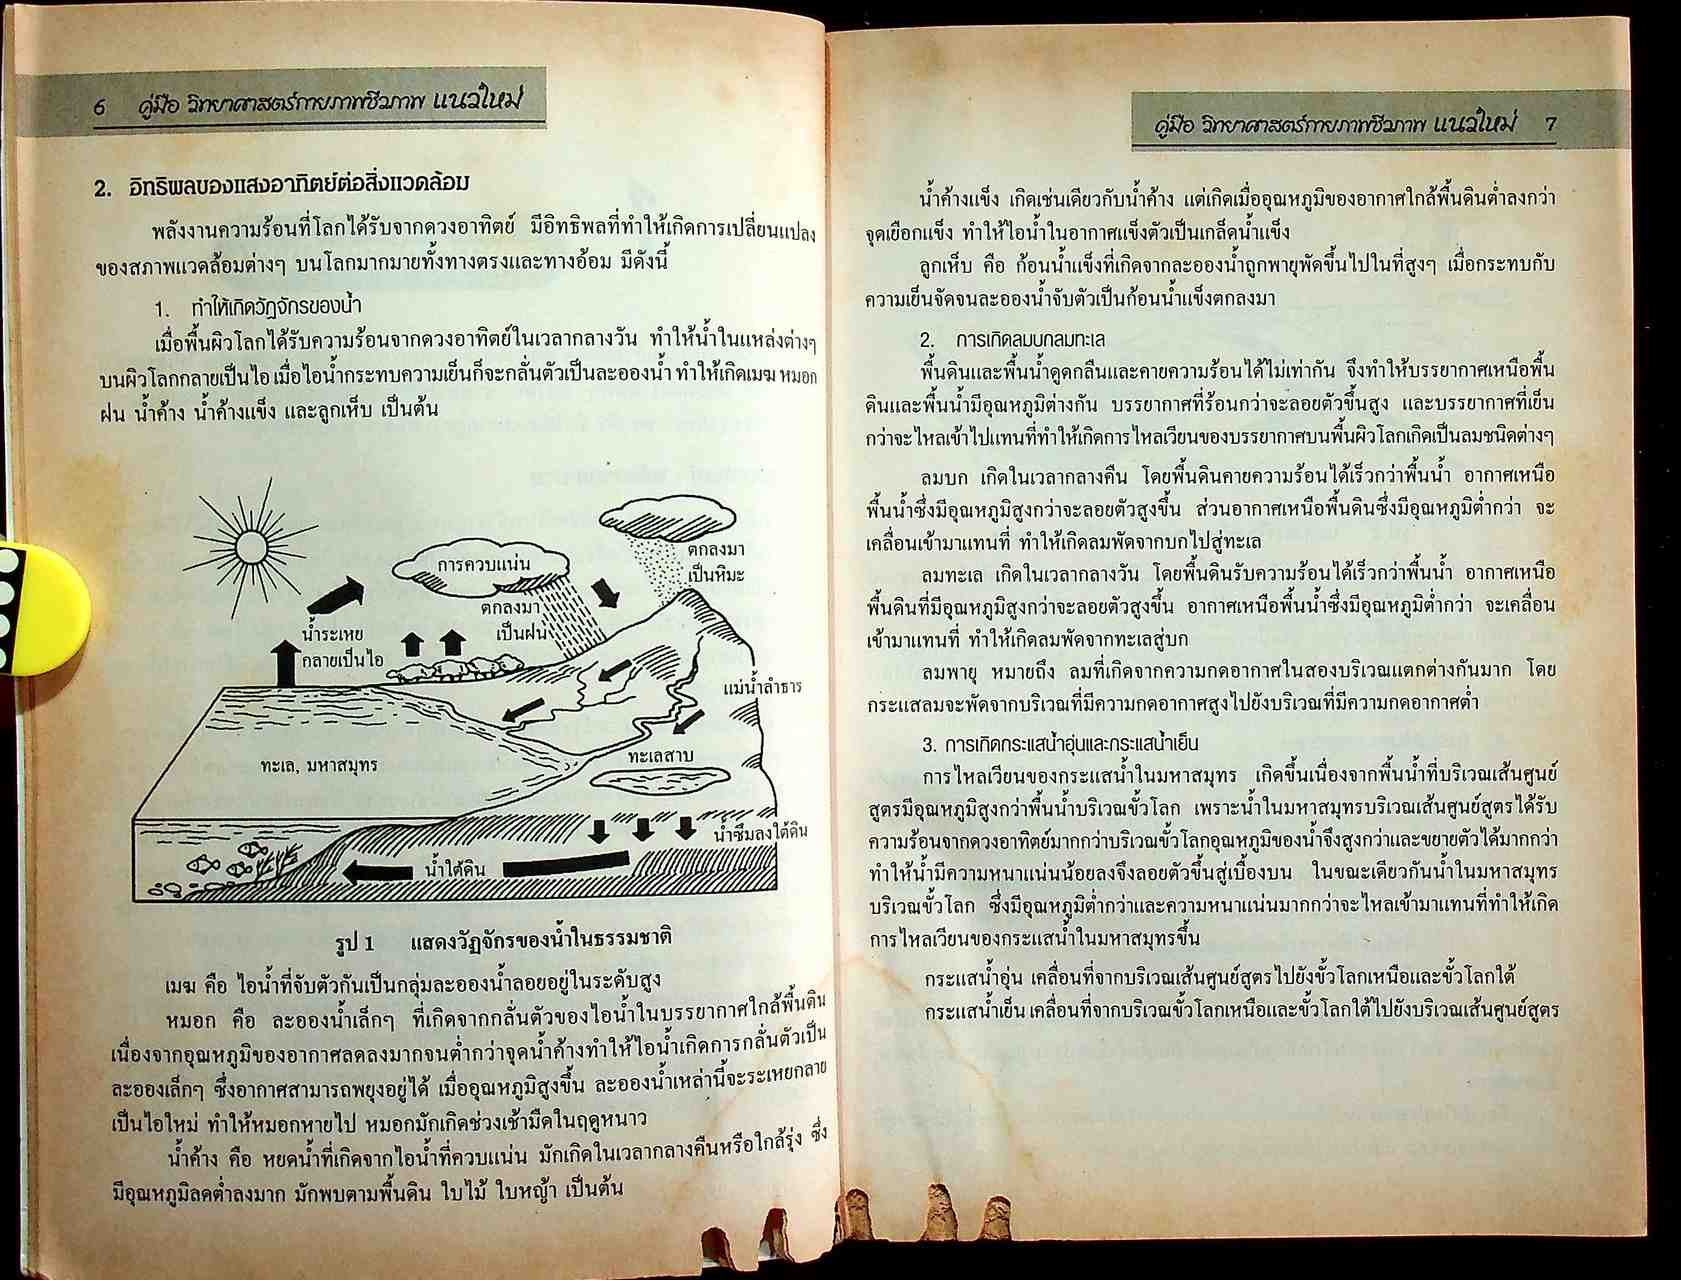 6 คู่มือ วิทยาศาสตร์กายภาพชีวภาพ แนวใหม่
2. อิทธิพลของแสงอาทิตย์ต่อสิ่งแวดล้อม
พลังงานความร้อนที่โลกได้รับจากดวงอาทิตย์ มีอิทธิพลที่ทำให้เกิดการเปลี่ยนแปลง
ของสภาพแวดล้อมต่างๆ บนโลกมากมายทั้งทางตรงและทางอ้อม มีดังนี้
1. ทำให้เกิดวัฏจักรของน้ำ
เมื่อพื้นผิวโลกได้รับความร้อนจากดวงอาทิตย์ในเวลากลางวัน ทำให้น้ำในแหล่งต่างๆ
บนผิวโลกกลายเป็นไอ เมื่อไอน้ำกระทบความเย็นก็จะกลั่นตัวเป็นละอองน้ำ ทำให้เกิดเมฆ หมอก
ฝน น้ำค้าง น้ำค้างแข็ง และลูกเห็บ เป็นต้น
การควบแน่น
ตกลงมา
เป็นหิมะ
ตกลงมา
เป็นฝน
น้ำระเหย
กลายเป็นไอ
แม่น้ำลำธาร
ทะเล, มหาสมุทร
ทะเลสาบ
น้ำซึมลงใต้ดิน
น้ำใต้ดิน
รูป 1 แสดงวัฏจักรของน้ำในธรรมชาติ
เมฆ คือ ไอน้ำที่จับตัวกันเป็นกลุ่มละอองน้ำลอยอยู่ในระดับสูง
หมอก คือ ละอองน้ำเล็กๆ ที่เกิดจากกลั่นตัวของไอน้ำในบรรยากาศใกล้พื้นดิน
เนื่องจากอุณหภูมิของอากาศลดลงมากจนต่ำกว่าจุดน้ำค้างทำให้ไอน้ำเกิดการกลั่นตัวเป็น
ละอองเล็กๆ ซึ่งอากาศสามารถพยุงอยู่ได้ เมื่ออุณหภูมิสูงขึ้น ละอองน้ำเหล่านี้จะระเหยกลาย
เป็นไอใหม่ ทำให้หมอกหายไป หมอกมักเกิดช่วงเช้ามืดในฤดูหนาว
น้ำค้าง คือ หยดน้ำที่เกิดจากไอน้ำที่ควบแน่น มักเกิดในเวลากลางคืนหรือใกล้รุ่ง ซึ่ง
มีอุณหภูมิลดต่ำลงมาก มักพบตามพื้นดิน ใบไม้ ใบหญ้า เป็นต้น
คู่มือ วิทยาศาสตร์กายภาพชีวภาพ แนวใหม่ 7
น้ำค้างแข็ง เกิดเช่นเดียวกับน้ำค้าง แต่เกิดเมื่ออุณหภูมิของอากาศใกล้พื้นดินต่ำลงกว่า
จุดเยือกแข็ง ทำให้ไอน้ำในอากาศแข็งตัวเป็นเกล็ดน้ำแข็ง
ลูกเห็บ คือ ก้อนน้ำแข็งที่เกิดจากละอองน้ำถูกพายุพัดขึ้นไปในที่สูงๆ เมื่อกระทบกับ
ความเย็นจัดจนละอองน้ำจับตัวเป็นก้อนน้ำแข็งตกลงมา
2. การเกิดลมบกลมทะเล
พื้นดินและพื้นน้ำดูดกลืนและคายความร้อนได้ไม่เท่ากัน จึงทำให้บรรยากาศเหนือพื้น
ดินและพื้นน้ำมีอุณหภูมิต่างกัน บรรยากาศที่ร้อนกว่าจะลอยตัวขึ้นสูง และบรรยากาศที่เย็น
กว่าจะไหลเข้าไปแทนที่ทำให้เกิดการไหลเวียนของบรรยากาศบนพื้นผิวโลกเกิดเป็นลมชนิดต่างๆ
ลมบก เกิดในเวลากลางคืน โดยพื้นดินคายความร้อนได้เร็วกว่าพื้นน้ำ อากาศเหนือ
พื้นน้ำซึ่งมีอุณหภูมิสูงกว่าจะลอยตัวสูงขึ้น ส่วนอากาศเหนือพื้นดินซึ่งมีอุณหภูมิต่ำกว่า จะ
เคลื่อนเข้ามาแทนที่ ทำให้เกิดลมพัดจากบกไปสู่ทะเล
ลมทะเล เกิดในเวลากลางวัน โดยพื้นดินรับความร้อนได้เร็วกว่าพื้นน้ำ อากาศเหนือ
พื้นดินที่มีอุณหภูมิสูงกว่าจะลอยตัวสูงขึ้น อากาศเหนือพื้นน้ำซึ่งมีอุณหภูมิต่ำกว่า จะเคลื่อน
เข้ามาแทนที่ ทำให้เกิดลมพัดจากทะเลสู่บก
ลมพายุ หมายถึง ลมที่เกิดจากความกดอากาศในสองบริเวณแตกต่างกันมาก โดย
กระแสลมจะพัดจากบริเวณที่มีความกดอากาศสูงไปยังบริเวณที่มีความกดอากาศต่ำ
3. การเกิดกระแสน้ำอุ่นและกระแสน้ำเย็น
การไหลเวียนของกระแสน้ำในมหาสมุทร เกิดขึ้นเนื่องจากพื้นน้ำที่บริเวณเส้นศูนย์
สูตรมีอุณหภูมิสูงกว่าพื้นน้ำบริเวณขั้วโลก เพราะน้ำในมหาสมุทรบริเวณเส้นศูนย์สูตรได้รับ
ความร้อนจากดวงอาทิตย์มากกว่าบริเวณขั้วโลกอุณหภูมิของน้ำจึงสูงกว่าและขยายตัวได้มากกว่า
ทำให้น้ำมีความหนาแน่นน้อยลงจึงลอยตัวขึ้นสู่เบื้องบน ในขณะเดียวกันน้ำในมหาสมุทร
บริเวณขั้วโลก ซึ่งมีอุณหภูมิต่ำกว่าและความหนาแน่นมากกว่าจะไหลเข้ามาแทนที่ทำให้เกิด
การไหลเวียนของกระแสน้ำในมหาสมุทรขึ้น
กระแสน้ำอุ่น เคลื่อนที่จากบริเวณเส้นศูนย์สูตรไปยังขั้วโลกเหนือและขั้วโลกใต้
กระแสน้ำเย็น เคลื่อนที่จากบริเวณขั้วโลกเหนือและขั้วโลกใต้ไปยังบริเวณเส้นศูนย์สูตร